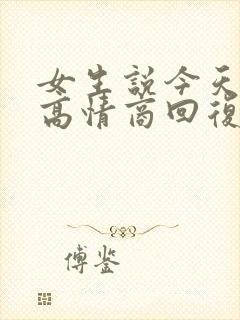 女生説今天
高情商回復
傅鉴